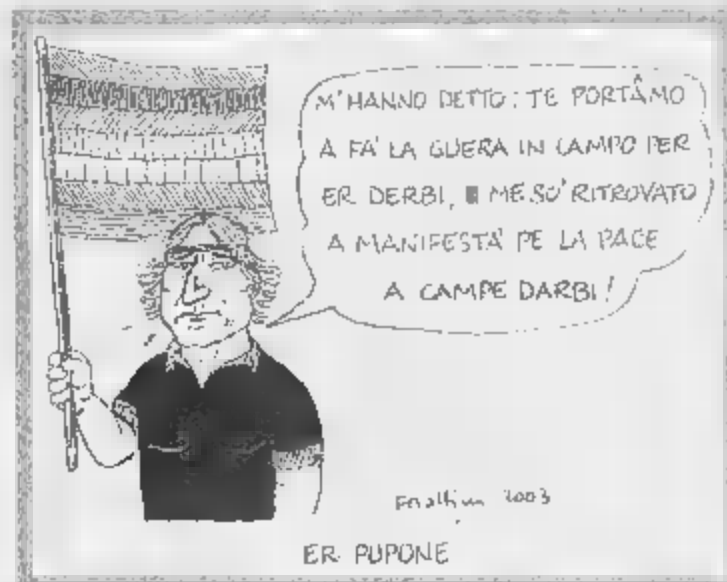 M'HANNO DETTO: TE PORTÀMO
A FA' LA GUERA IN CAMPO PER
ER DERBI, ME SO' RITROVATO
A MANIFESTA' PE LA PACE
A CAMPE DARBI!
2003
ER PUPONE